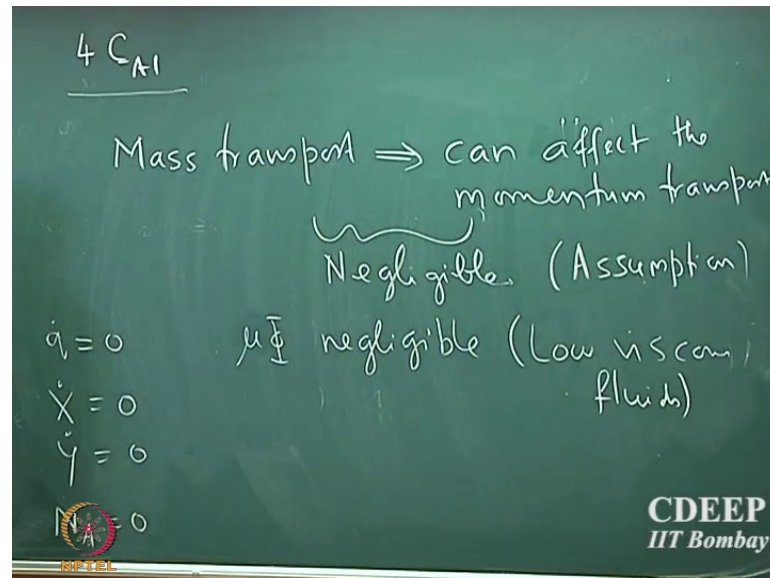 4 C_A1
Mass transport ⇒ can affect the
momentum transport
Negligible (Assumption)
q̇ = 0 μΦ negligible (Low viscous
fluids)
Ẋ = 0
Ẏ = 0
Ṅ_A = 0
NPTEL
CDEEP
IIT Bombay